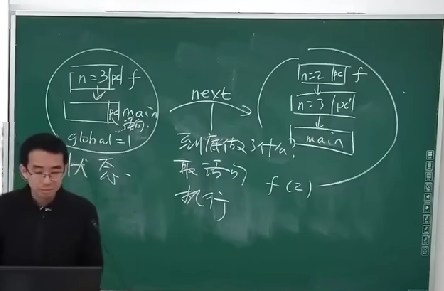 n=3 pc f
pc main
global=1
状态
next
取语句
执行
n=2 pc f
n=3 pc
main
f(2)